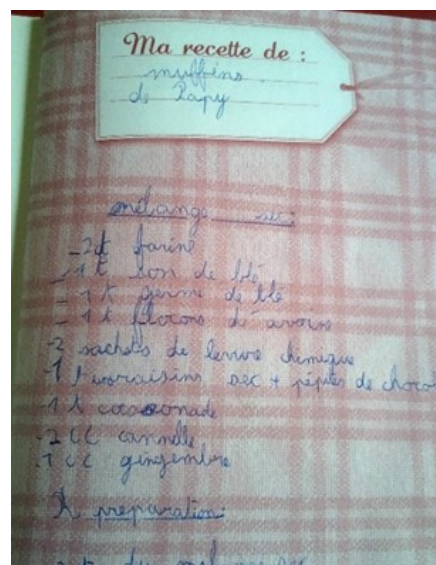 Ma recette de :
muffins
de Papy
mélange sec:
- 2t farine
- 1t son de blé
- 1t germe de blé
- 1t flocons de avoine
- 2 sachets de levure chimique
- 1 t raisins sec + pépites de chocol
- 1t cassonade
- 2 CC cannelle
- 1 CC gingembre
preparation: